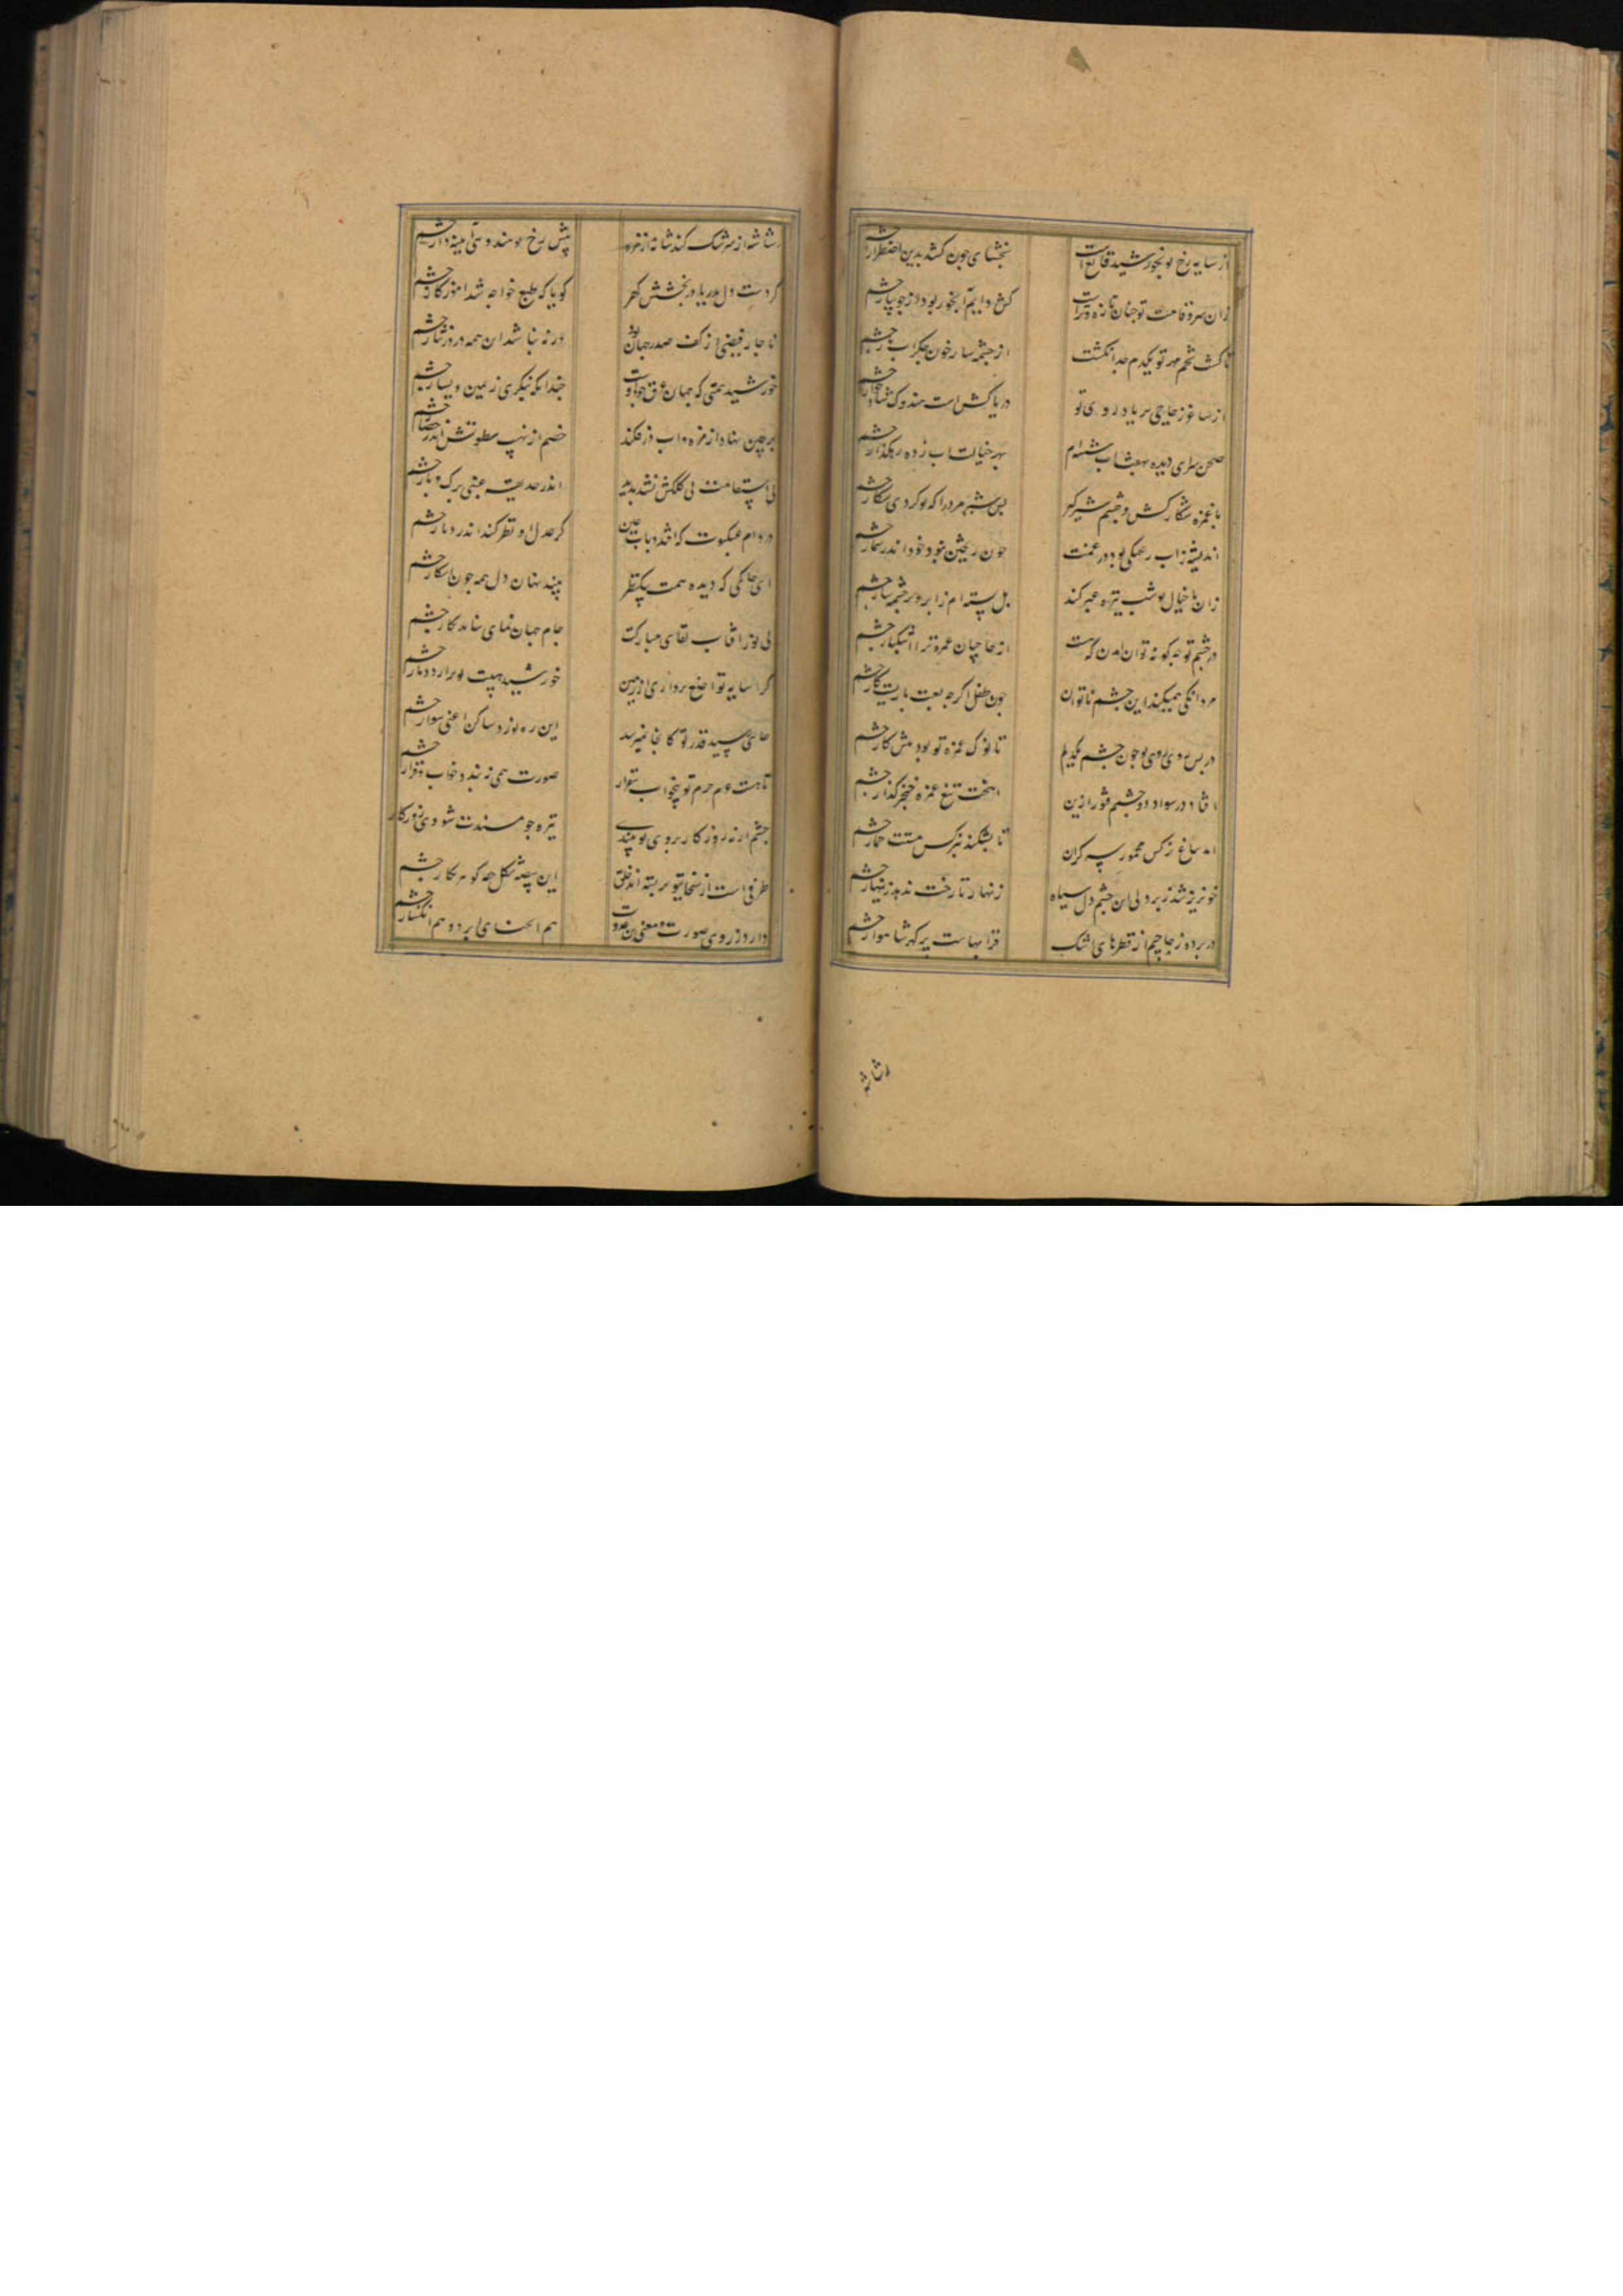 از سایه رخ تو بخورشید قانع است بخشای چون کشد بدین اضطرار چشم
زان سرو قامت تو چنان تازه و تراست کش دایم آبخور بود از جویبار چشم
تا کشت تخم مهر تو یکدم جدا نکشت از چشمه سار خون جگر آب چشم
از ساغر زجاجی بر یاد روی تو دریا کش است
صحن سرای دیده بهفت آب شسته‌ام بهر خیالت آب زده رهگذار چشم
با غمزه شکار کش و چشم شیرگیر بس شیر مرد را که تو کردی شکار چشم
اندیشه ز آب بود در غمت چون ریختن بود خود اندر شمار چشم
زان تا خیال تو شب تیره عبر کند پل بسته‌ام ز ابرو بر چشمه سار چشم
در چشم تو چه کونه توان آمدن که هست از حاجبان غمزه ترا
مردانگی همیکند این چشم ناتوان چون طفل اگر چه لعبت بازیست کار چشم
در پس روی تو چون چشم یکدیم تا نوک غمزه تو بود پیش کار چشم
افتاد در سواد دو چشم فتور ازین تیغ غمزه خنجر گذار چشم
آمد بباغ نرکس مخمور سر گران تا بشکند نرکس مستت خمار چشم
خونریز شد ز بر دلی آن چشم دل سیاه زنهار تا رخت ندهد زینهار چشم
در پرده زجاجیم از قطرهای اشک قرابهاست پر گهر شاهوار چشم
رشاشه
رشاشه از سرشک کند شانه از مژه پیش رخ تو هندوی آینه دار چشم
کر دست دل بدریا در بخشش گهر گویا که طبع خواجه شد آموزگار چشم
ناچار فیضی از کف صدر جهان بود ورنه نباشد این همه در در نثار چشم
خورشید همتی که جهان غرق جود اوست چندانکه بنگری ز یمین و یسار چشم
بر چین نهاد از مژه و آب در فکند خصم از نهیب سطوتش اندر حصار چشم
بی استقامت نی کلکش نشد پدید اندر حدیقه عنبی برگ و بار چشم
در دام عنکبوت که افتد ذباب عین گر عدل او نظر کند اندر دیار چشم
ای حاکمی که دیده همت بیک نظر بیند نهان دل همه چون آشکار چشم
بی نور آفتاب لقای مبارکت جام جهان نمای نیاید بکار چشم
کر سایه تواضع برداری از زمین خورشید هیبت تو برآرد دمار چشم
جایی رسید قدر تو کانجا نمیرسد این ره نورد ساکن اعنی سوار چشم
تا هست عزم حزم تو بیخواب و بیقرار صورت همی نبندد خواب و قرار چشم
چشم ار نه روز کار بروی تو تیره چو مسندت شودی روزکار
طرفی است از سخا بتو بر بسته اند خلق این بیضه شکل حقه گوهر نگار چشم
دارد ز روی صورت و معنی بن عدوت هم انحنای ابرو و هم انکسار چشم